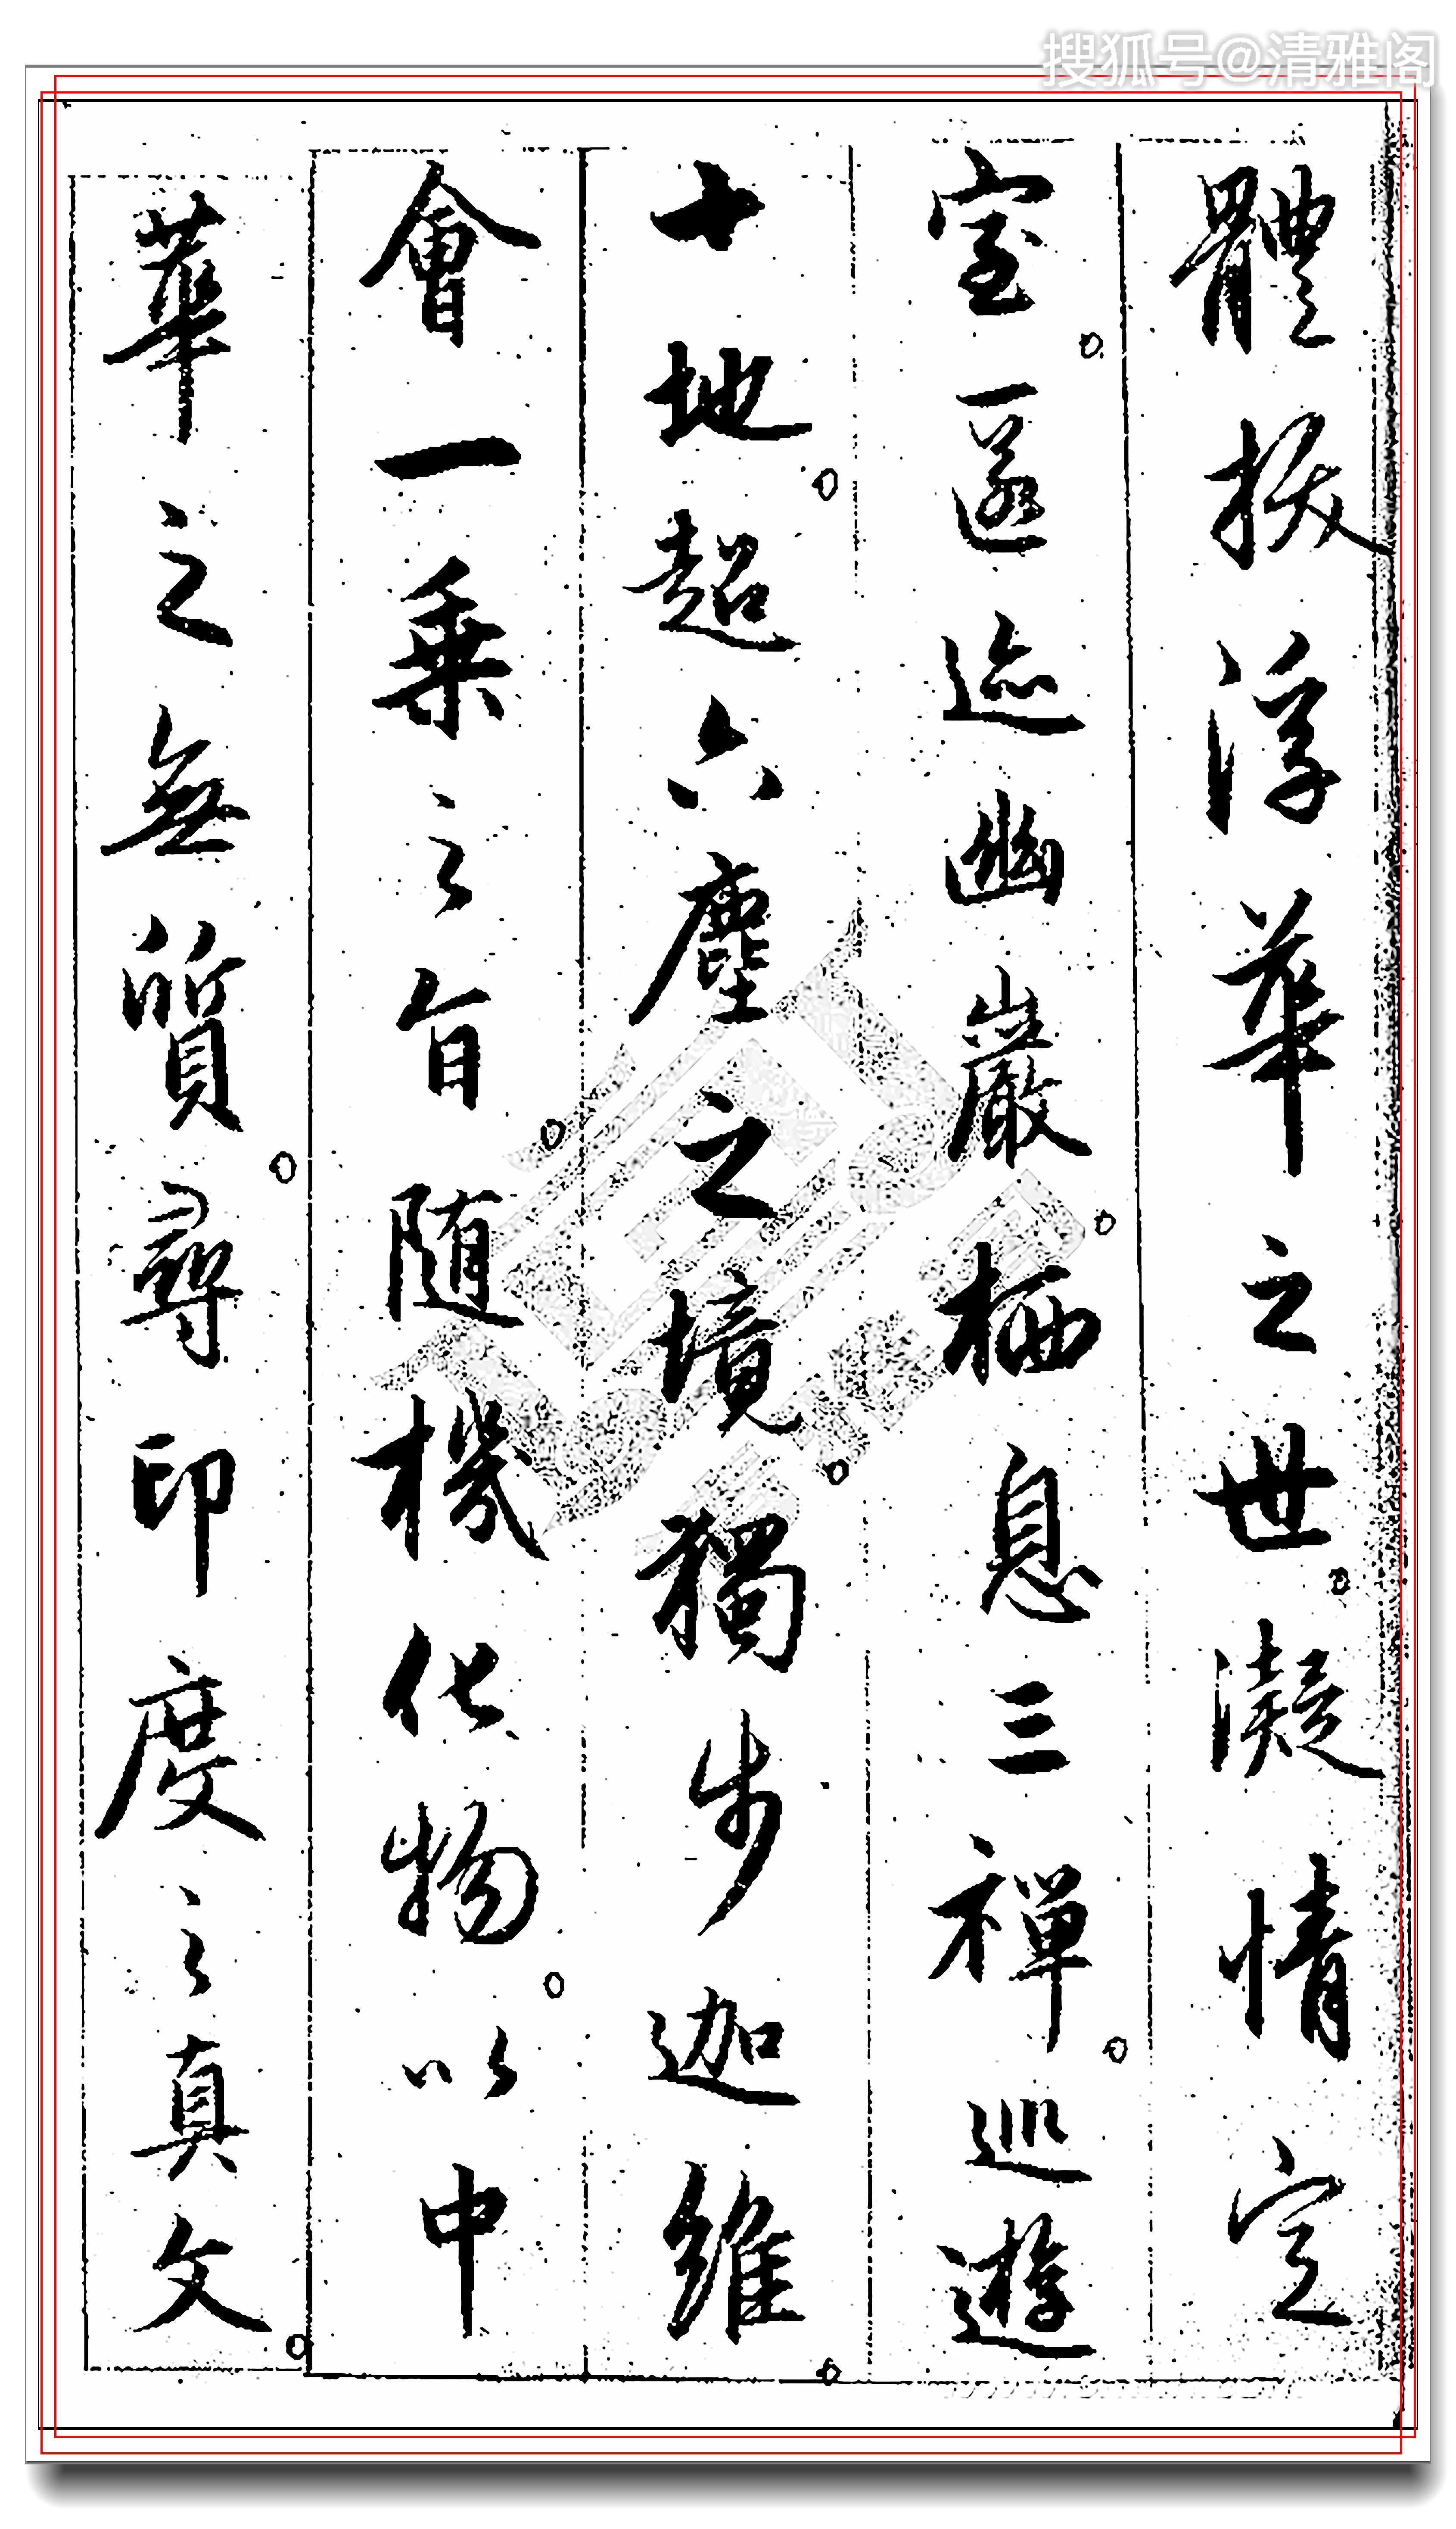 搜狐号@清雅阁
體拔浮華之世凝情定
室匿迹幽巖栖息三禪巡遊
十地超六塵之境獨步迦維
會一乘之旨随機化物以中
華之無質尋印度之真文